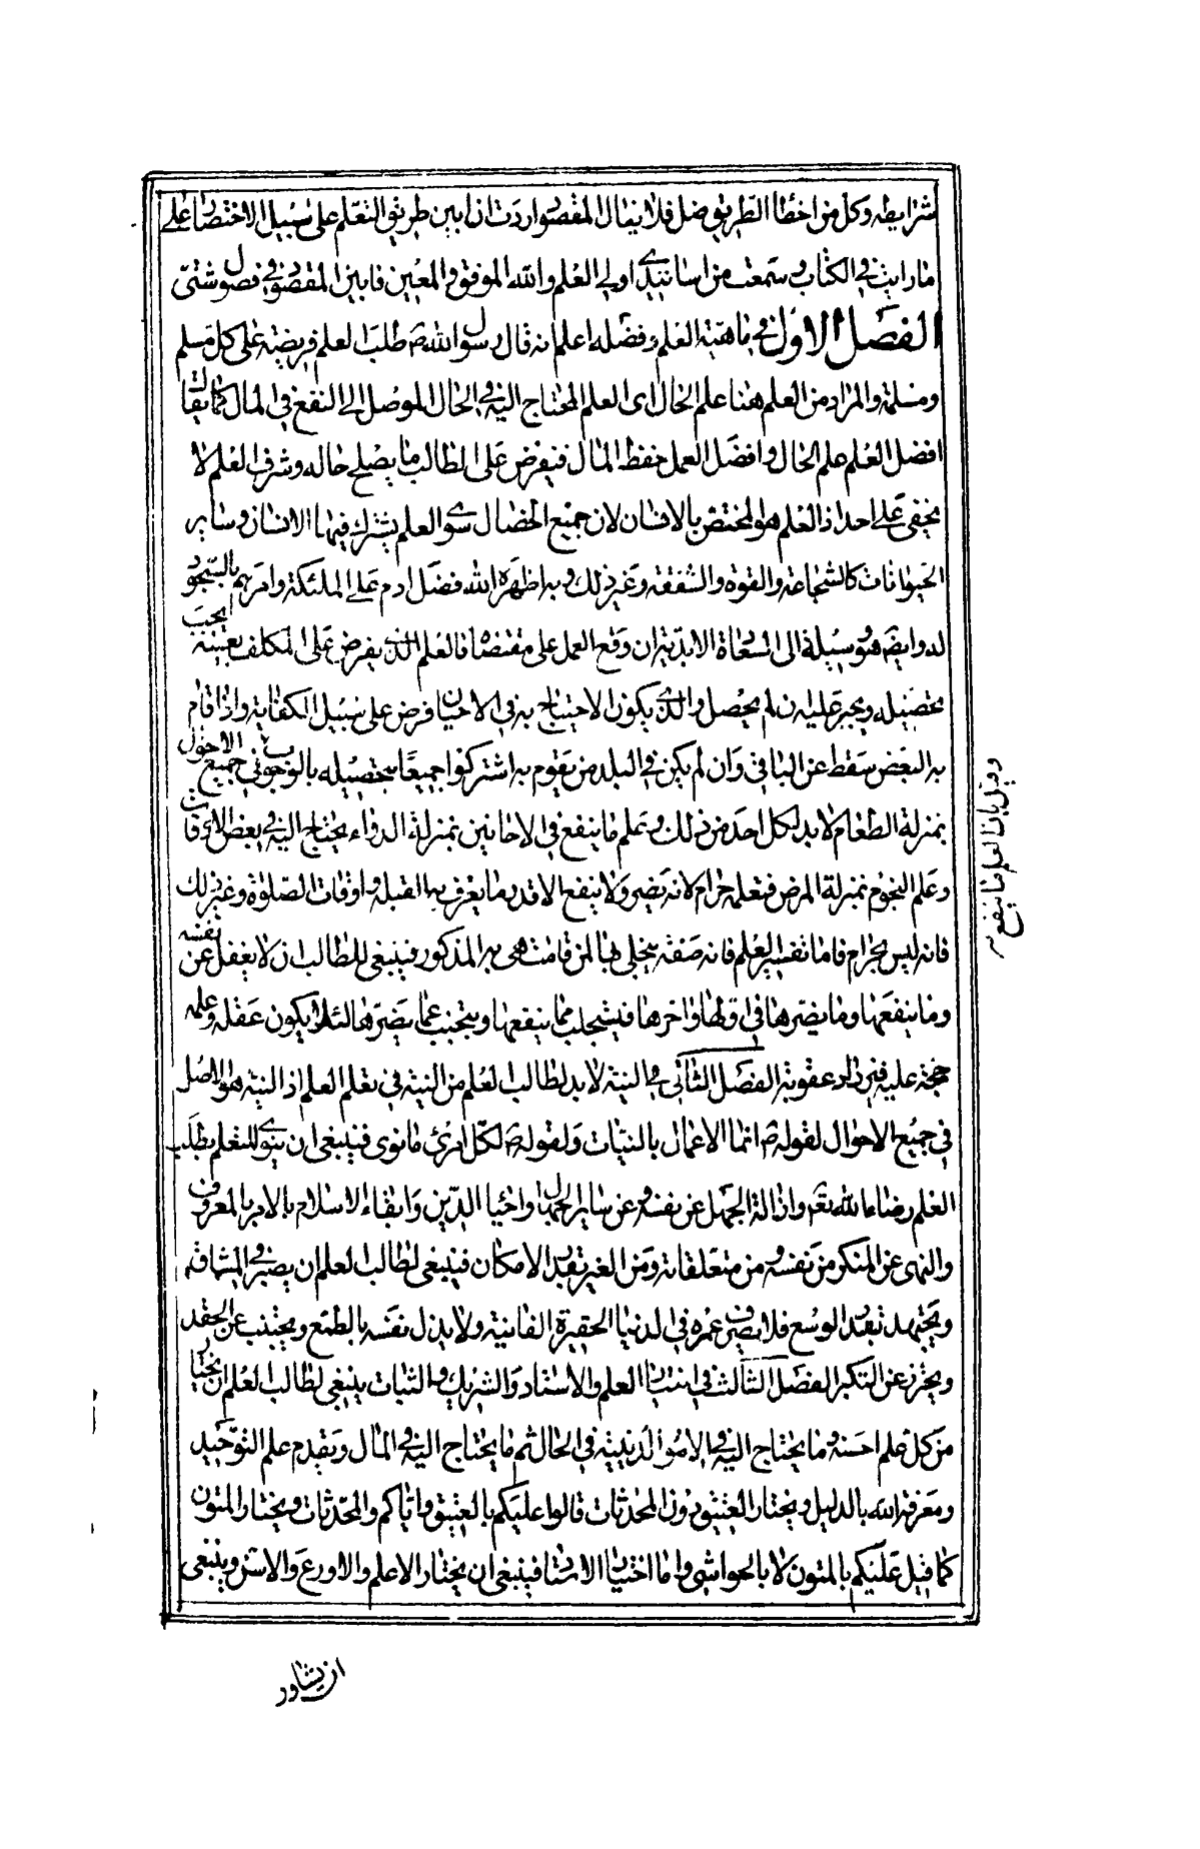 شرايطه وكل من اخطا الطريق ضل فلا ينال المقصود اردت ان ابين طريق التعلم على سبيل الاختصار على
ما رايت فى الكتاب وسمعت من اساتيدى اولى العلم والله الموفق والمعين فابين المقصود فى فصول شتى
الفصل الاول فى ماهية العلم وفضله اعلم انه قال رسول الله ص طلب العلم فريضة على كل مسلم
ومسلمة والمراد من العلم هنا علم الحال اى العلم المحتاج اليه فى الحال الموصل الى النفع فى المال كما يقال
افضل العلم علم الحال وافضل العمل حفظ المال فيفرض على الطالب ما يصلح حاله وشرف العلم لا
يخفى على احد اذ العلم هو المختص بالانسان لان جميع الخصال سوى العلم يشترك فيها الانسان وساير
الحيوانات كالشجاعة والقوة والشفقة وغير ذلك وبه اظهره الله فضل ادم على الملئكة وامرهم بالسجود
له وايضه هو وسيلة الى السعادة الابدية ان وقع العمل على مقتضاه فالعلم الذى يفرض على المكلف بعينه يجب
تحصيله ويجبر عليه ان لم يحصل والذى يكون الاحتياج به فى الاحيان فرض على سبيل الكفاية واذا قام
به البعض سقط عن الباقى وان لم يكن فى البلد من يقوم به اشتركوا جميعًا بتحصيله بالوجوب فى جميع الاحوال
بمنزلة الطعام لا بد لكل احد من ذلك وعلم ما ينفع فى الاحانين بمنزلة الدواء يحتاج اليه فى بعض الاوقات
وعلم النجوم بمنزلة المرض فتعلمه حرام لانه يضر ولا ينفع الا قدر ما يعرف به القبلة واوقات الصلوة وغير ذلك
فانه ليس بحرام فاما تفسير العلم فانه صفة يتجلى بها لمن قامت هى به المذكور فينبغى للطالب ان لا يغفل عن نفسه
وما ينفعها وما يضرها فى اولها واخرها فيستجلب مما ينفعها ويتجنب عما يضرها لئلا يكون عقله وعلمه
حجة عليه فيزداد عقوبة الفصل الثانى فى النية لا بد لطالب العلم من النية فى تعلم العلم اذ النية هو الاصل
فى جميع الاحوال لقوله ص انما الاعمال بالنيات ولقوله ص لكل امرئ ما نوى فينبغى ان ينوى المتعلم بطلب
العلم رضاء الله تعم وازالة الجهل عن نفسه وعن ساير الجهال واحياء الدين وابقاء الاسلام بالامر بالمعروف
والنهى عن المنكر من نفسه ومن متعلقاته ومن الغير بقدر الامكان فينبغى لطالب العلم ان يصبر فى المشاقة
ويجتهد بقدر الوسع فلا يصرف عمره فى الدنيا الحقيرة الفانية ولا يذل نفسه بالطمع ويجتنب عن الحقد
ويحترز عن التكبر الفصل الثالث فى اختيار العلم والاستاد والشريك والثبات ينبغى لطالب العلم ان يختار
من كل علم احسنه وما يحتاج اليه فى الامور الدينية فى الحال ثم ما يحتاج اليه فى المال ويقدم علم التوحيد
ومعرفة الله بالدليل ويختار العتيق دون المحدثات قالوا عليكم بالعتيق واياكم والمحدثات ويختار المتون
كما قيل عليكم بالمتون لا بالحواشى واما اختيار الاستاد فينبغى ان يختار الاعلم والاورع والاسن وينبغى
وقيل بان العلم ما ينفع
ان يشاور